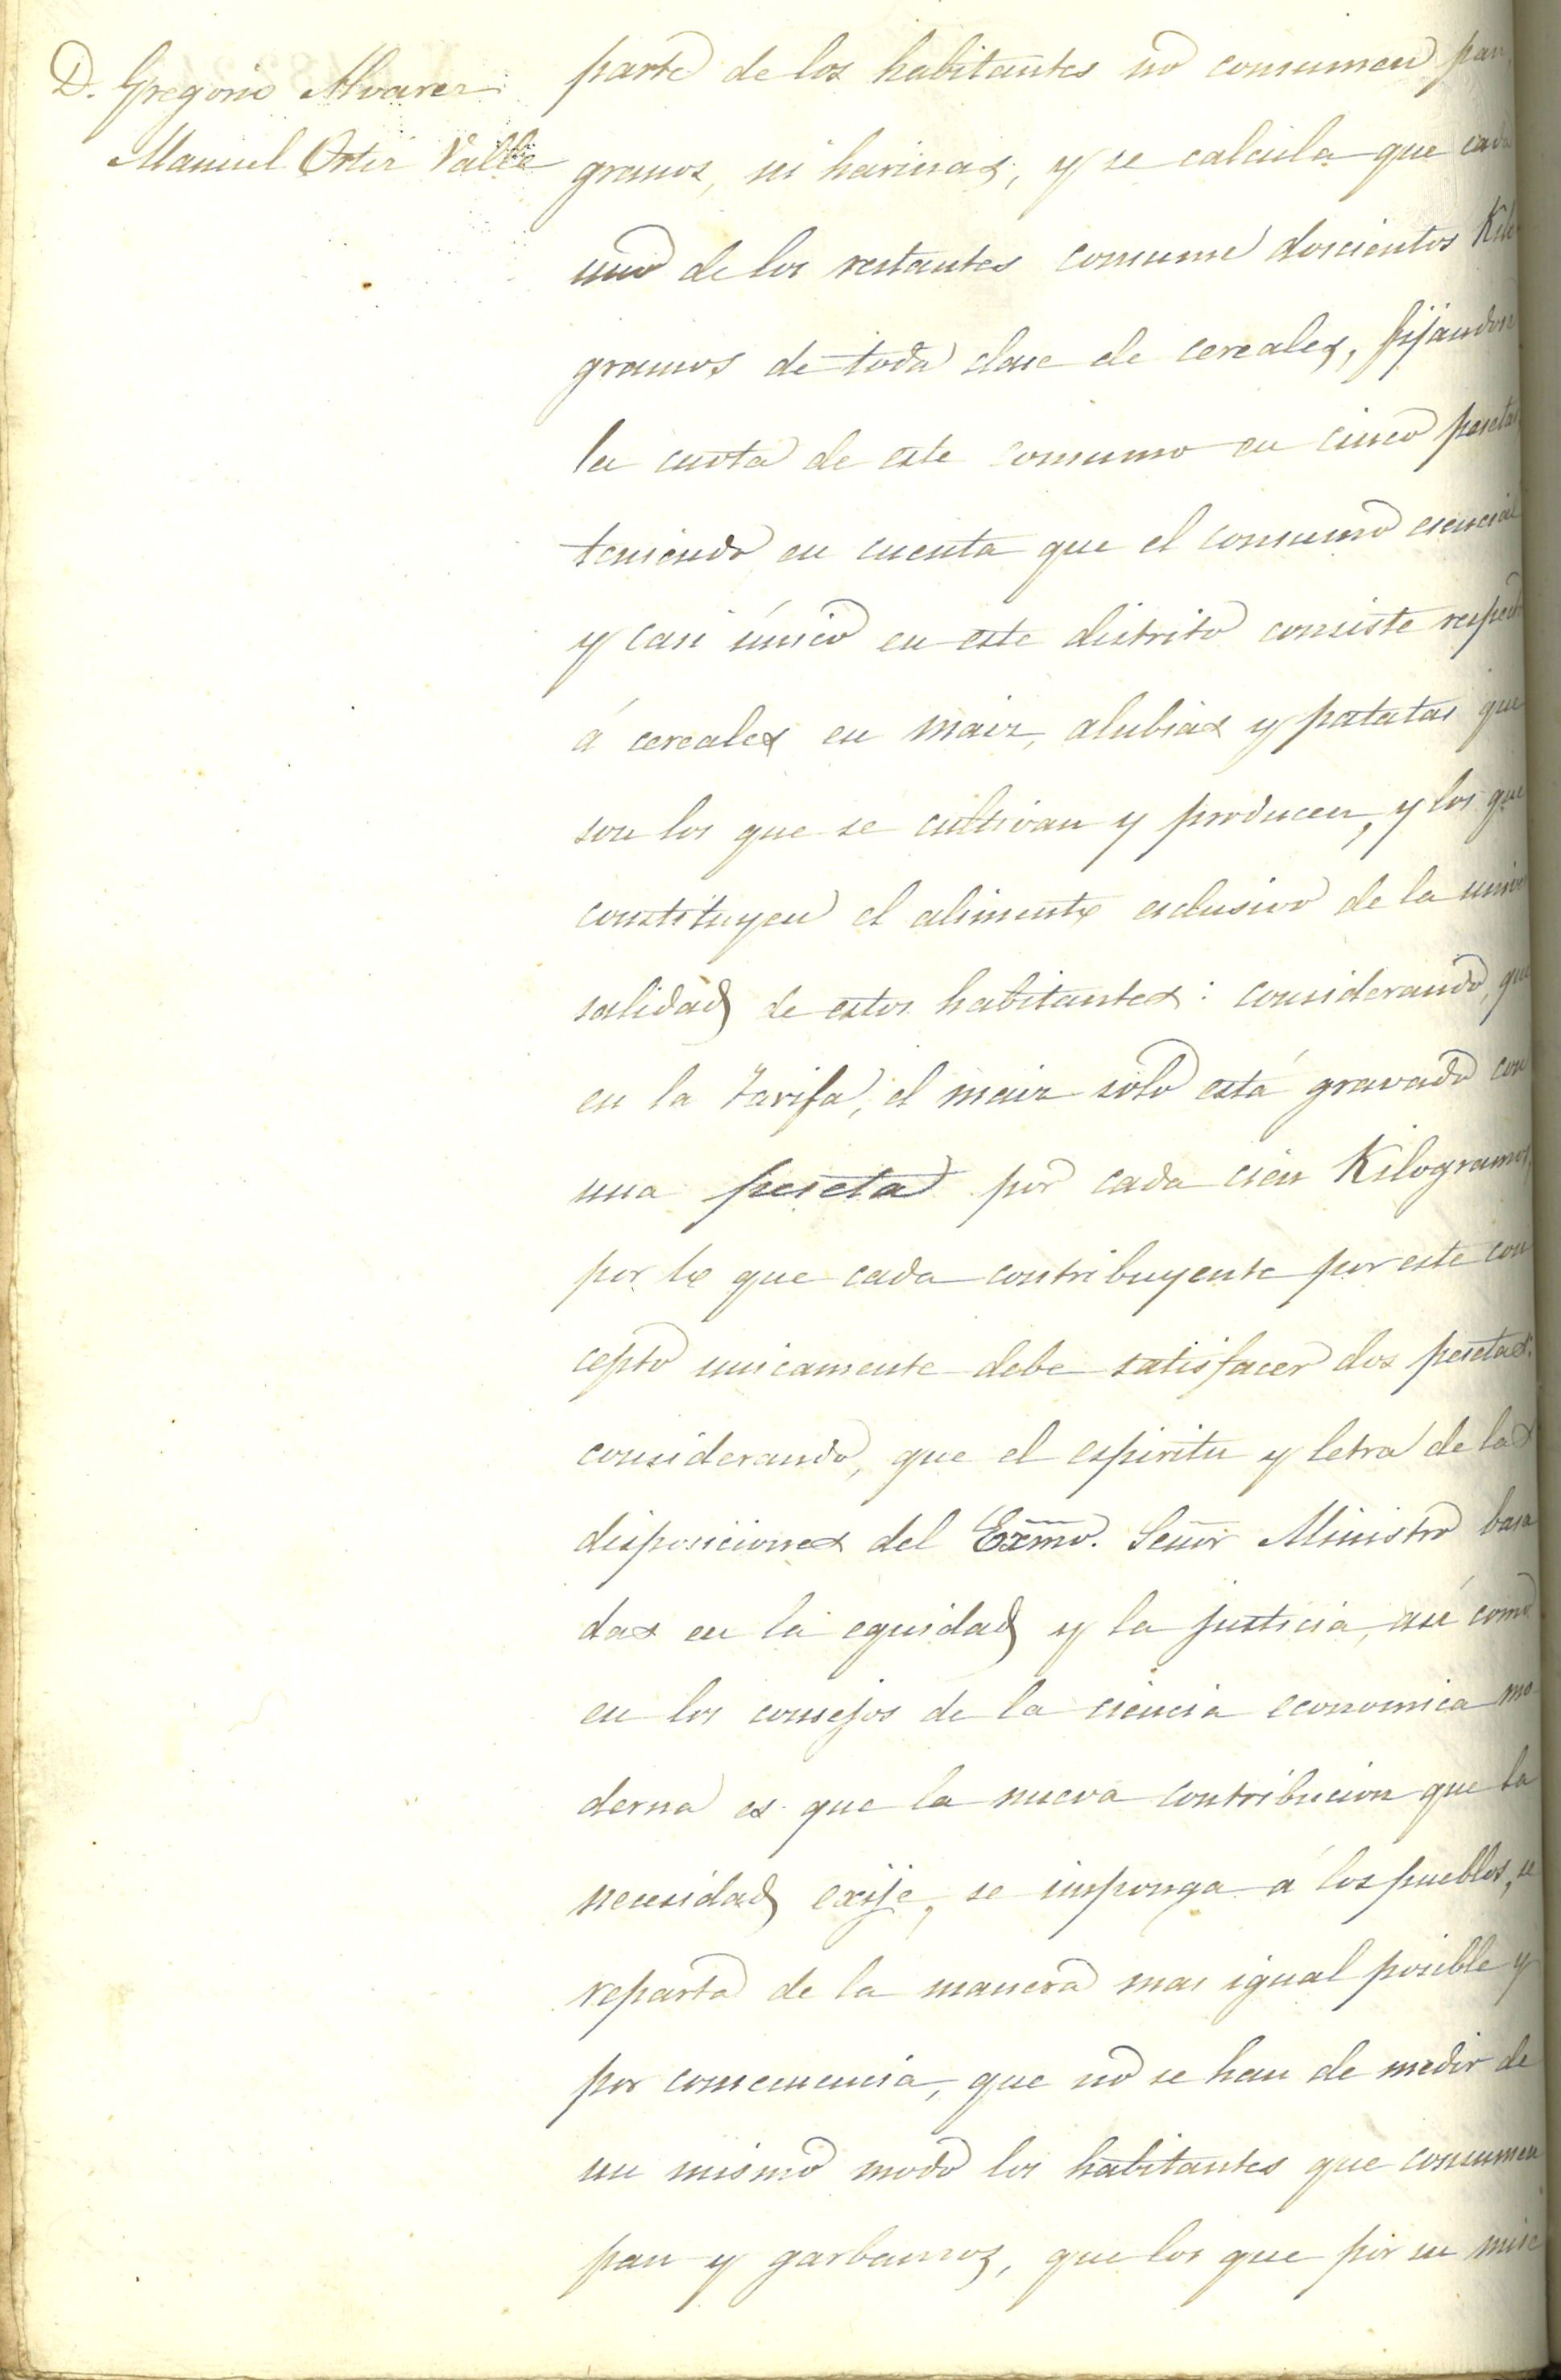 D. Gregorio Alvarez
Manuel Ortiz Valle
parte de los habitantes no consumen pan,
granos, ni harinas, y se calcula que cada
uno de los restantes consume doscientos Kilo
gramos de toda clase de cereales, fijándose
la cuota de este consumo en cinco pesetas,
teniendo en cuenta que el consumo esencial
y casi único en este distrito consiste respecto
á cereales en maiz, alubias y patatas que
son los que se cultivan y producen, y los que
constituyen el alimento esclusivo de la univer
salidad de estos habitantes: considerando, que
en la Tarifa, el maiz solo está gravado con
una peseta por cada cien Kilogramos,
por lo que cada contribuyente por este con
cepto unicamente debe satisfacer dos pesetas:
considerando, que el espiritu y letra de las
disposiciones del Exmo. Señor Ministro basa
das en la equidad y la justicia, asi como
en los consejos de la ciencia economica mo
derna es que la nueva contribucion que la
necesidad exije, se imponga á los pueblos, se
reparta de la manera mas igual posible y
por consecuencia, que no se han de medir de
un mismo modo los habitantes que consumen
pan y garbanzos, que los que por su mise